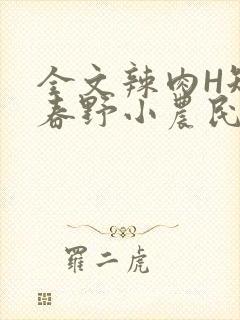 全文辣肉H短
春野小农民
罗二虎